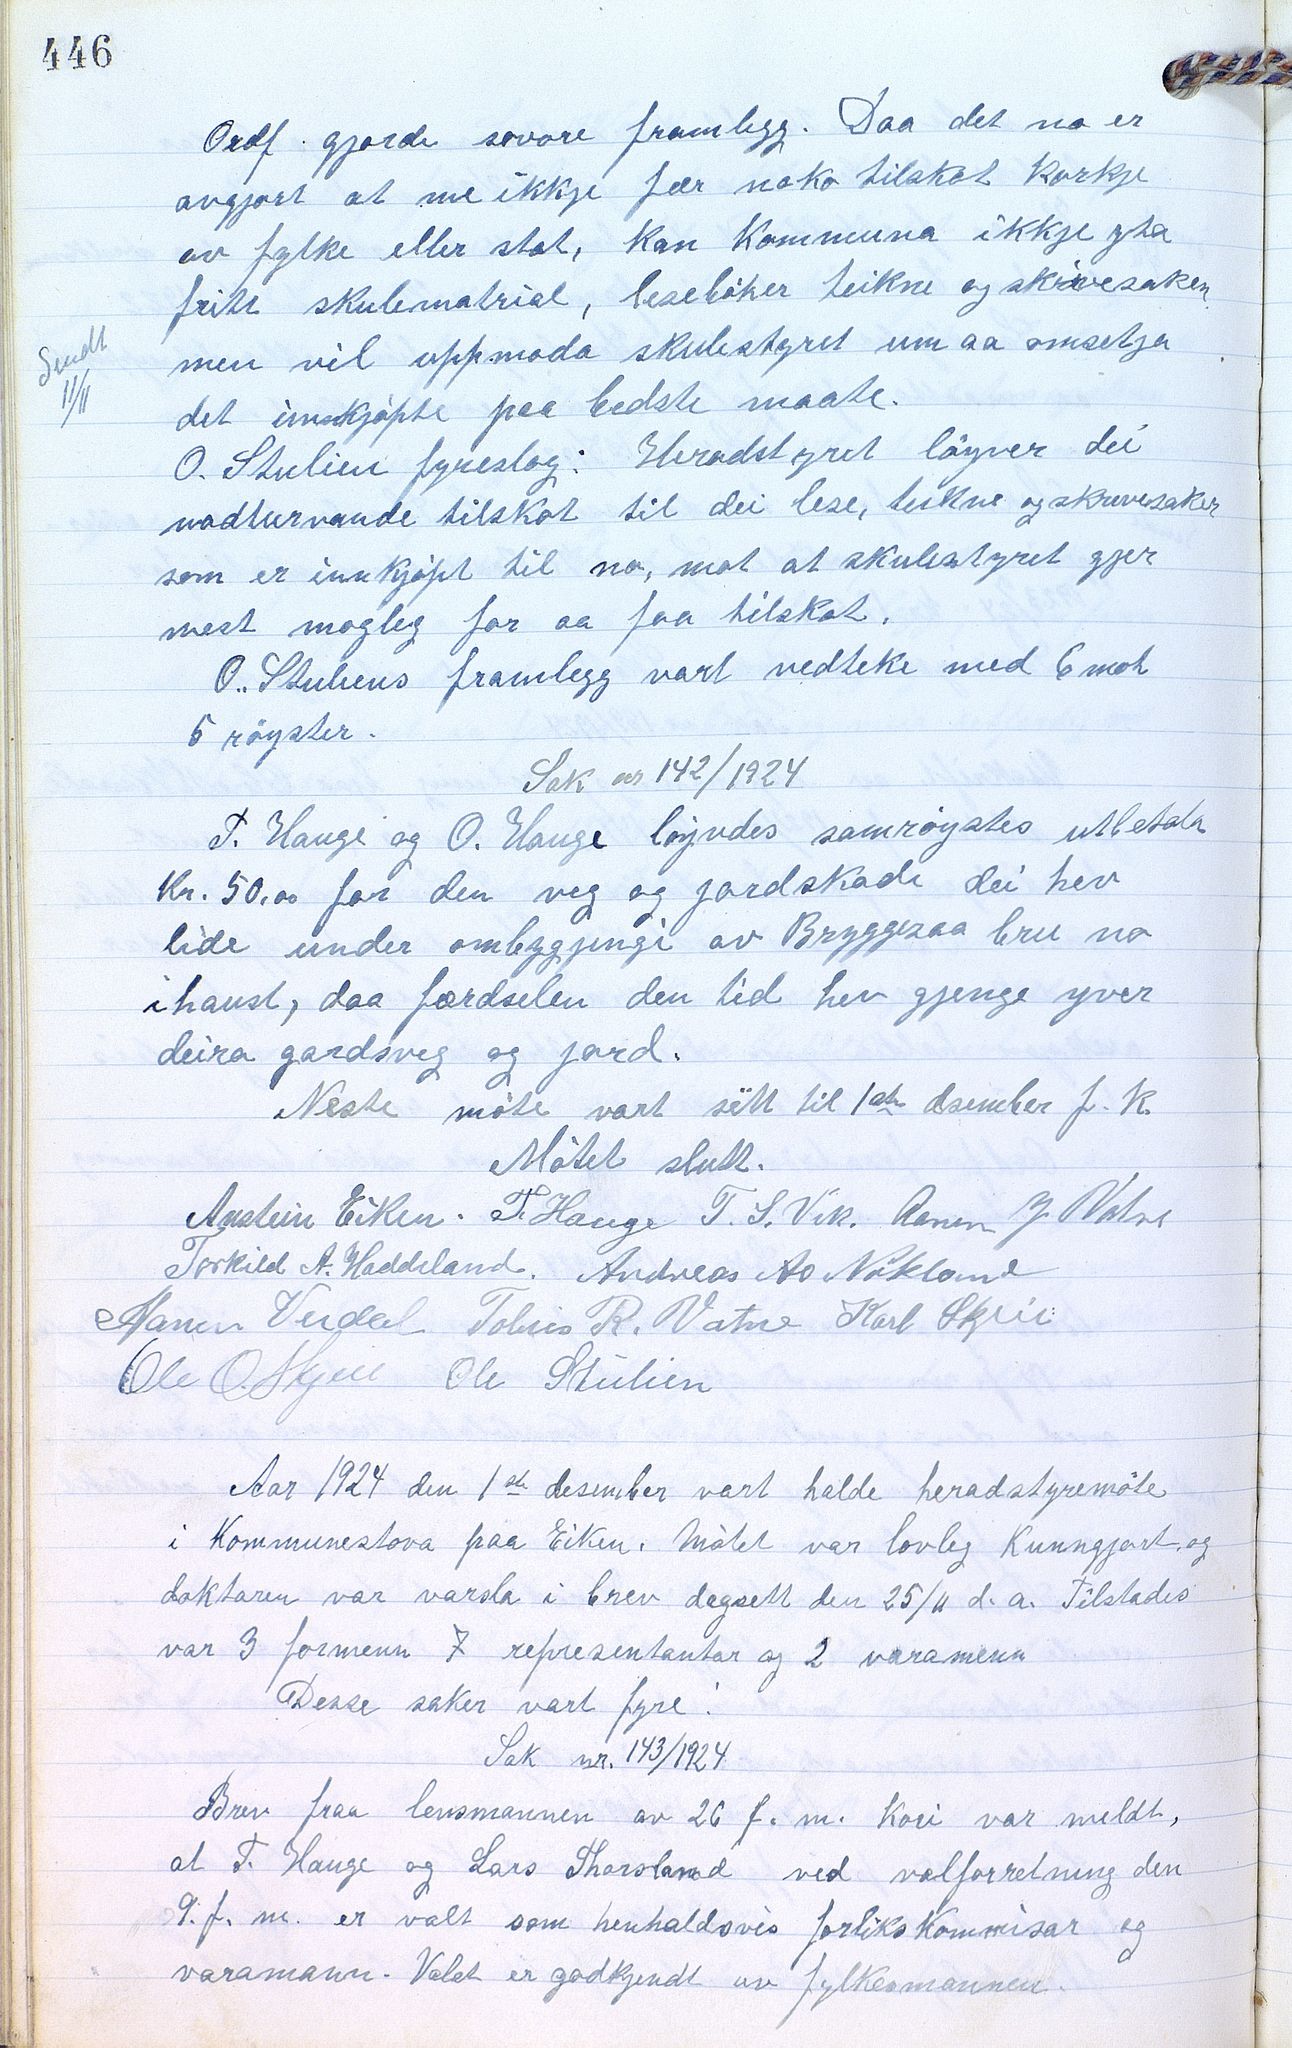 446
Ordf. gjorde sovore framlegg. Daa det no er
avgjort at me ikkje fær noko tilskot korkje
av fylke eller stat, kan kommuna ikkje yta
fritt skulematrial, lesebøker teikne og skrivesaker,
men vil uppmoda skulestyret um aa omsetja
Sendt
11/11
det innkjøpte paa bedste maate.
O. Stulien fyreslog: Heradstyret löyver dei
nødturvande tilskot til dei lese, teikne og skrivesaker
som er innkjöpt til no, mot at skulestyret gjer
mest mogleg for aa faa tilskot.
O. Stuliens framlegg vart vedteke med 6 mot
5 röyster.
Sak nr 142/1924
T. Hauge og O. Hauge löyvdes samröystes utbetala
Kr. 50,00 for den veg og jordskade dei hev
lide under ombygjingi av Bryggesaa bru no
i haust, daa færdselen den tid hev gjenge yver
deira gardsveg og jord.
Neste möte vart sett til 1ste dsember f. k.
Mötet slutt.
Anstein Eiken. T. Hauge T. S. Vik. Aanen J. Vatne
Torkild A. Haddeland. Andreas Ao Nökland
Aanen Verdal Tobias R. Vatne Karl Skjeii
Ole O. Skjeii Ole Stulien
Aar 1924 den 1ste desember vart halde heradstyremöte
i Kommunestova paa Eiken. Mötet var lovleg kunngjort, og
doktaren var varsla i brev dagsett den 25/11 d. a. Tilstades
var 3 formenn 7 representantar og 2 varamenn
Desse saker vart fyre:
Sak nr. 143/1924
Brev fraa lensmannen av 26 f. m. kori var meldt,
at T. Hauge og Lars Thorsland ved valforretning den
9. f. m. er valt som henhaldsvis forlikskommisar og
varamann. Valet er godkjendt av fylkesmannen.